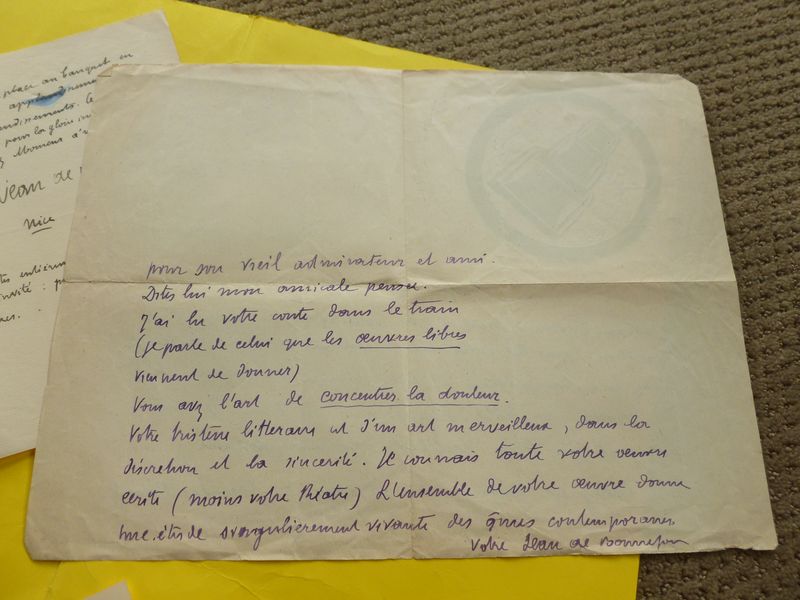 place au banquet en
pour la gloire
Jean de
Nice
pour son vieil admirateur et ami.
Dites lui mon amicale pensée.
J'ai lu votre conte dans le train
(je parle de celui que les œuvres libres
viennent de donner)
Vous avez l'art de concentrer la douleur.
Votre tristesse litteraire est d'un art merveilleux, dans la
discretion et la sincerité. Je connais toute votre œuvre
ecrite (moins votre théatre) L'ensemble de votre œuvre donne
une etude singulierement vivante des âmes contemporaines
Votre Jean de Bonnefon